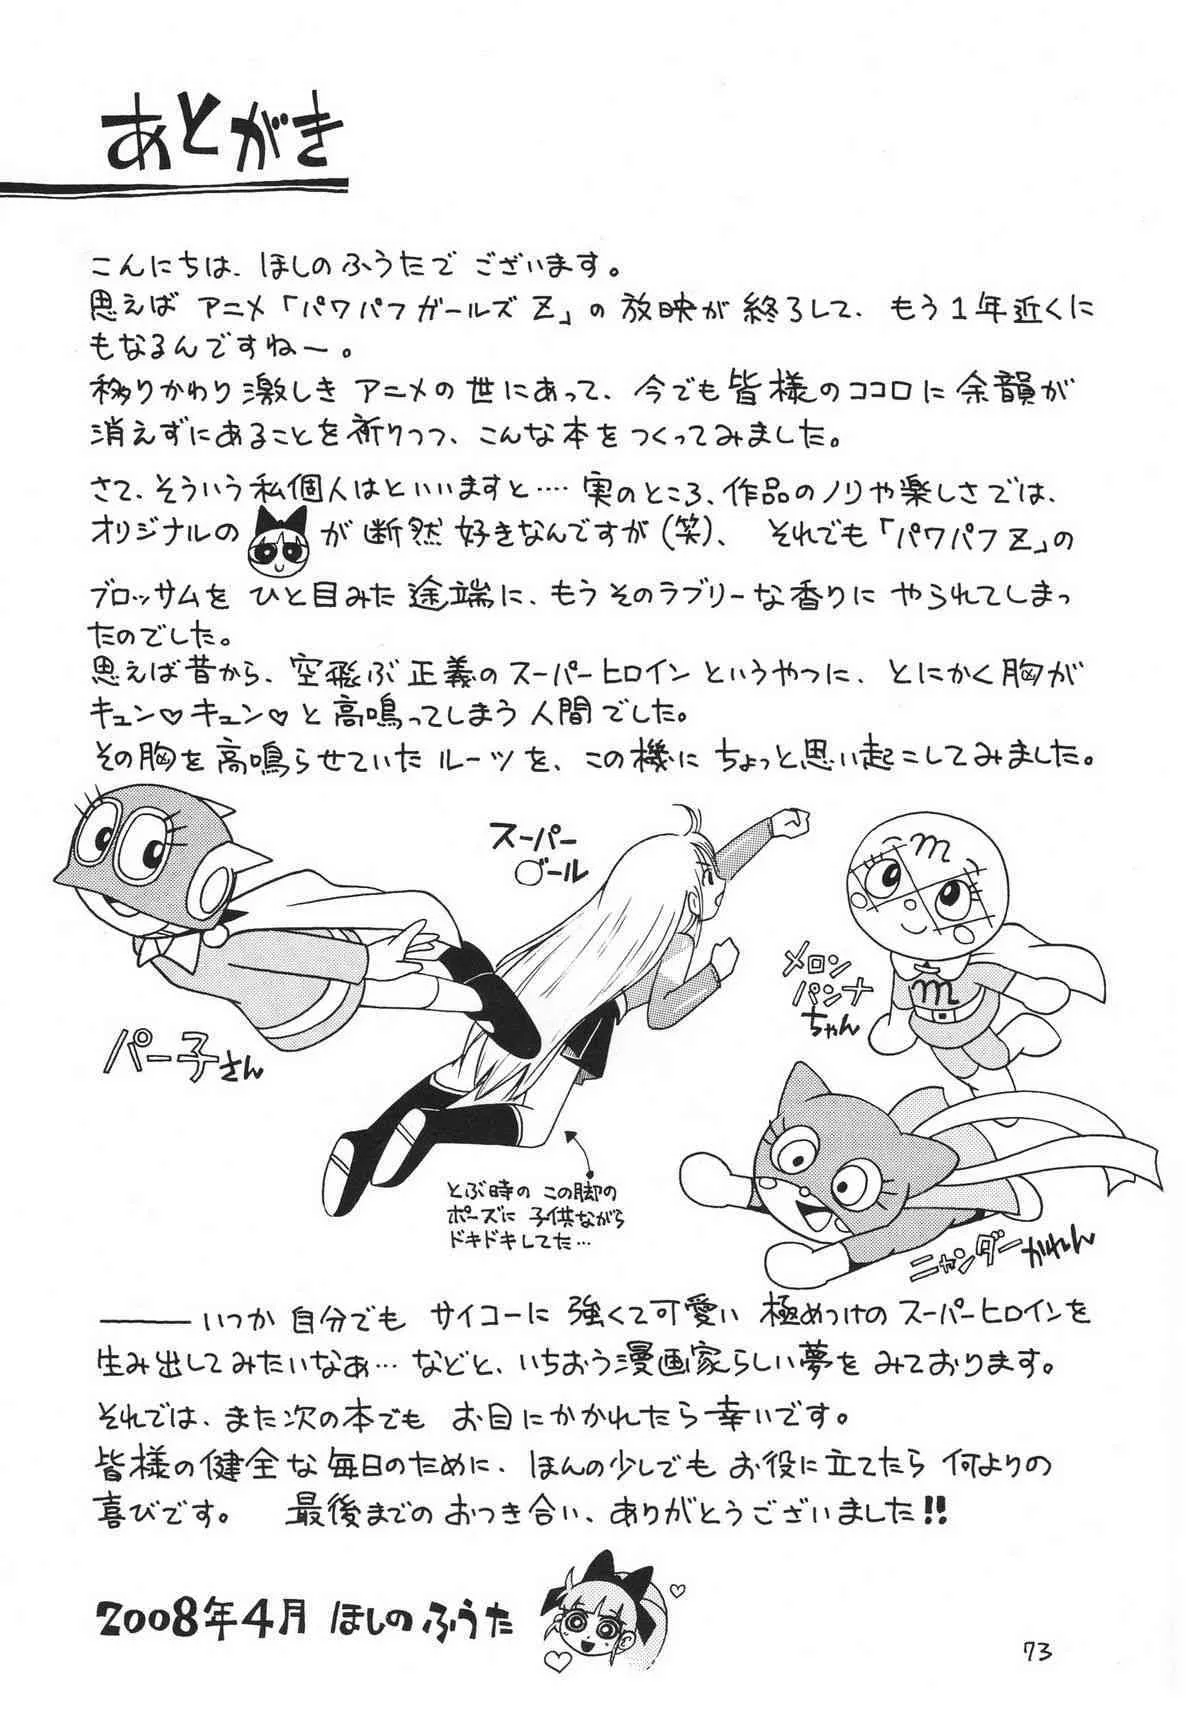 あとがき
こんにちは、ほしのふうたでございます。
思えば アニメ「パワパフガールズZ」の放映が終了して、もう1年近くに
もなるんですねー。
移りかわり激しきアニメの世にあって、今でも皆様のココロに余韻が
消えずにあることを祈りつつ、こんな本をつくってみました。
さて、そういう私個人はといいますと…‥ 実のところ、作品のノリや楽しさでは、
オリジナルの が断然好きなんですが(笑)、それでも「パワパフZ」の
ブロッサムを ひと目みた途端に、もうそのラブリーな香りに やられてしまっ
たのでした。
思えば昔から、空飛ぶ正義のスーパーヒロインというやつに、とにかく胸が
キュン♡キュン♡と高鳴ってしまう人間でした。
その胸を高鳴らせていたルーツを、この機にちょっと思い起こしてみました。
パー子さん
スーパー
○ール
とぶ時の この脚の
ポーズに 子供ながら
ドキドキしてた…
m
m
メロン
パンナ
ちゃん
ニャンダーかれん
――いつか自分でも サイコーに強くて可愛い 極めつけのスーパーヒロインを
生み出してみたいなぁ… などと、いちおう漫画家らしい夢をみております。
それでは、また次の本でも お目にかかれたら幸いです。
皆様の健全な毎日のために、ほんの少しでもお役に立てたら何よりの
喜びです。 最後までのおつき合い、ありがとうございました!!
2008年4月 ほしのふうた
73